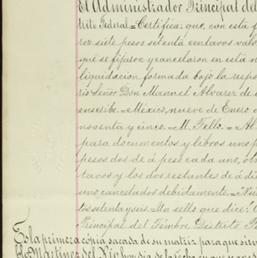 El Administrador Principal del
trito Federal = Certifica: que, con esta f
rez siete pesos setenta centavos valor
que se fijaron y cancelaron en esta m
liquidacion formada bajo la respo
rio Señor Don Manuel Alvarez de
suscribe = México, nueve de Enero
noventa y cinco. = M. Tello. = Al
para documentos y libros uno p
pesos dos de á peso cada uno, ot
tavos y los dos restantes de á di
uno cancelados debidamente. =
tos setenta y seis. = Un sello que dice:
Principal del Timbre Distrito F
Es la primera copia sacada de su matriz para que sirv
Martinez del Rio hoy dia de la fecha en que